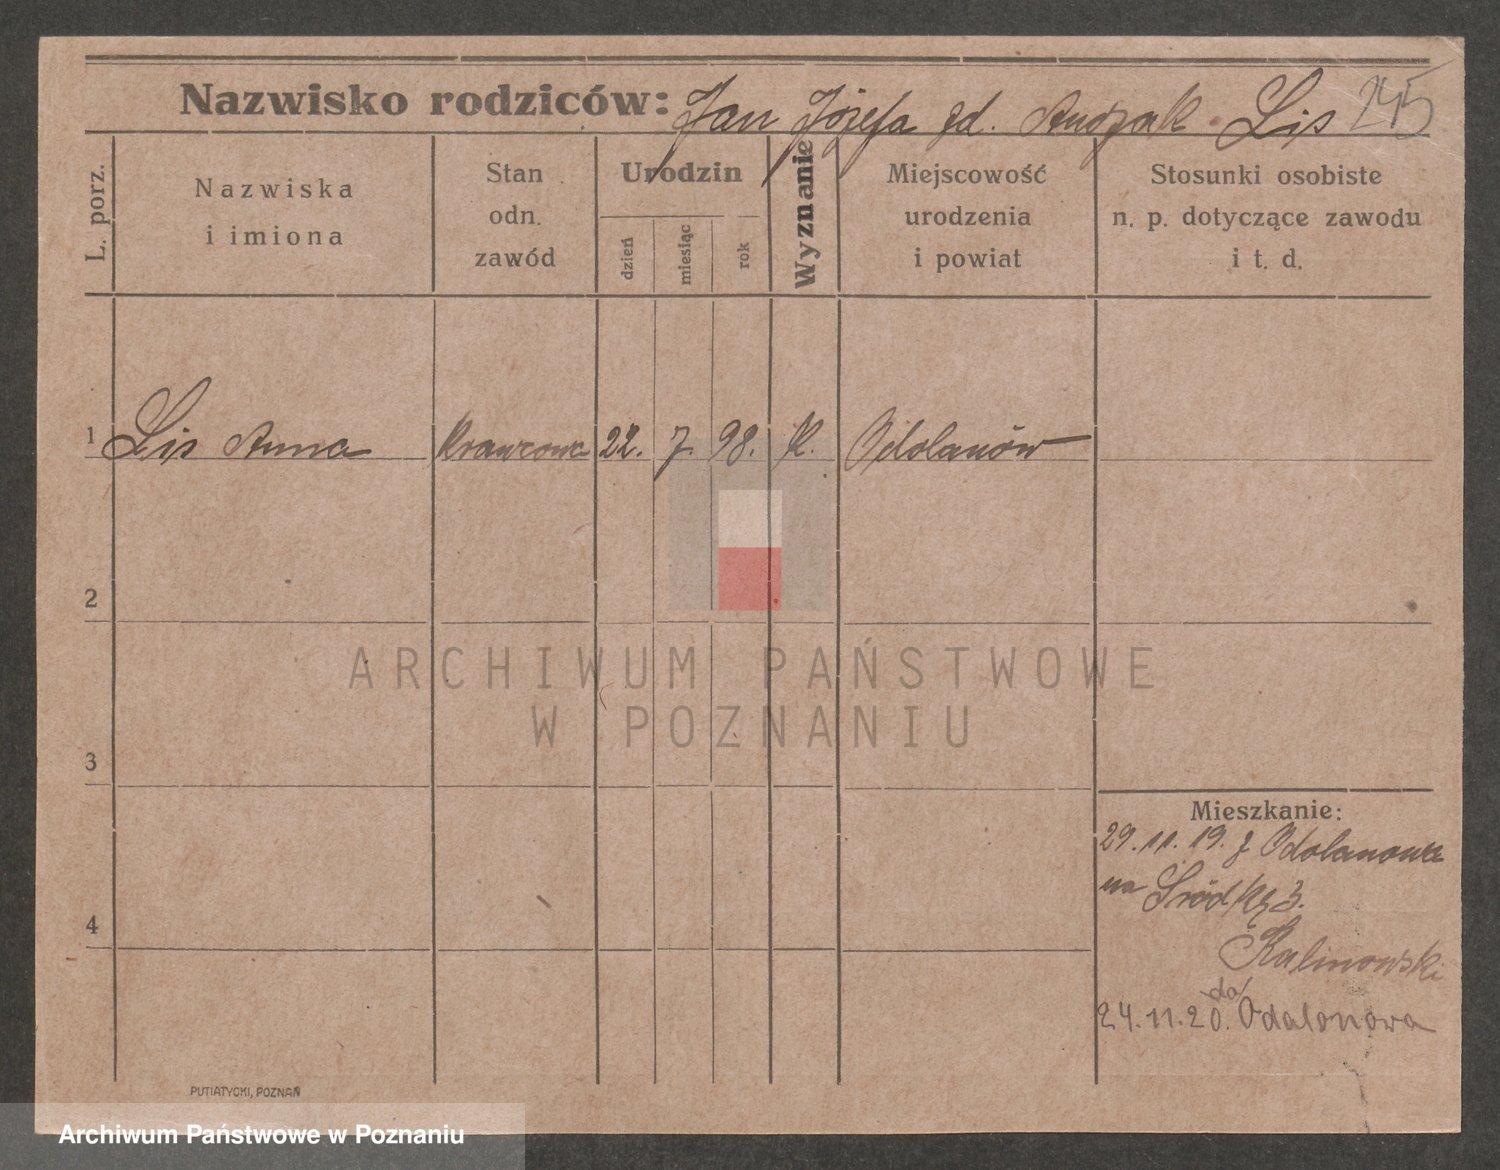 Nazwisko rodziców: Jan Józefa zd. Lis 245
L. porz.
Nazwiska
i imiona
Stan
odn.
zawód
Urodzin
dzień
miesiąc
rok
Wyznanie
Miejscowość
urodzenia
i powiat
Stosunki osobiste
n. p. dotyczące zawodu
i t. d.
1 Lis Anna Krawcowa 22. 7. 98. K. Odolanów
2
3
4
Mieszkanie:
29. 11. 19. z Odolanowa
na Śródkę 3.
Kalinowski
do
24. 11. 20. Odalonowa
PUTIATYCKI, POZNAŃ
ARCHIWUM PAŃSTWOWE
W POZNANIU
Archiwum Państwowe w Poznaniu